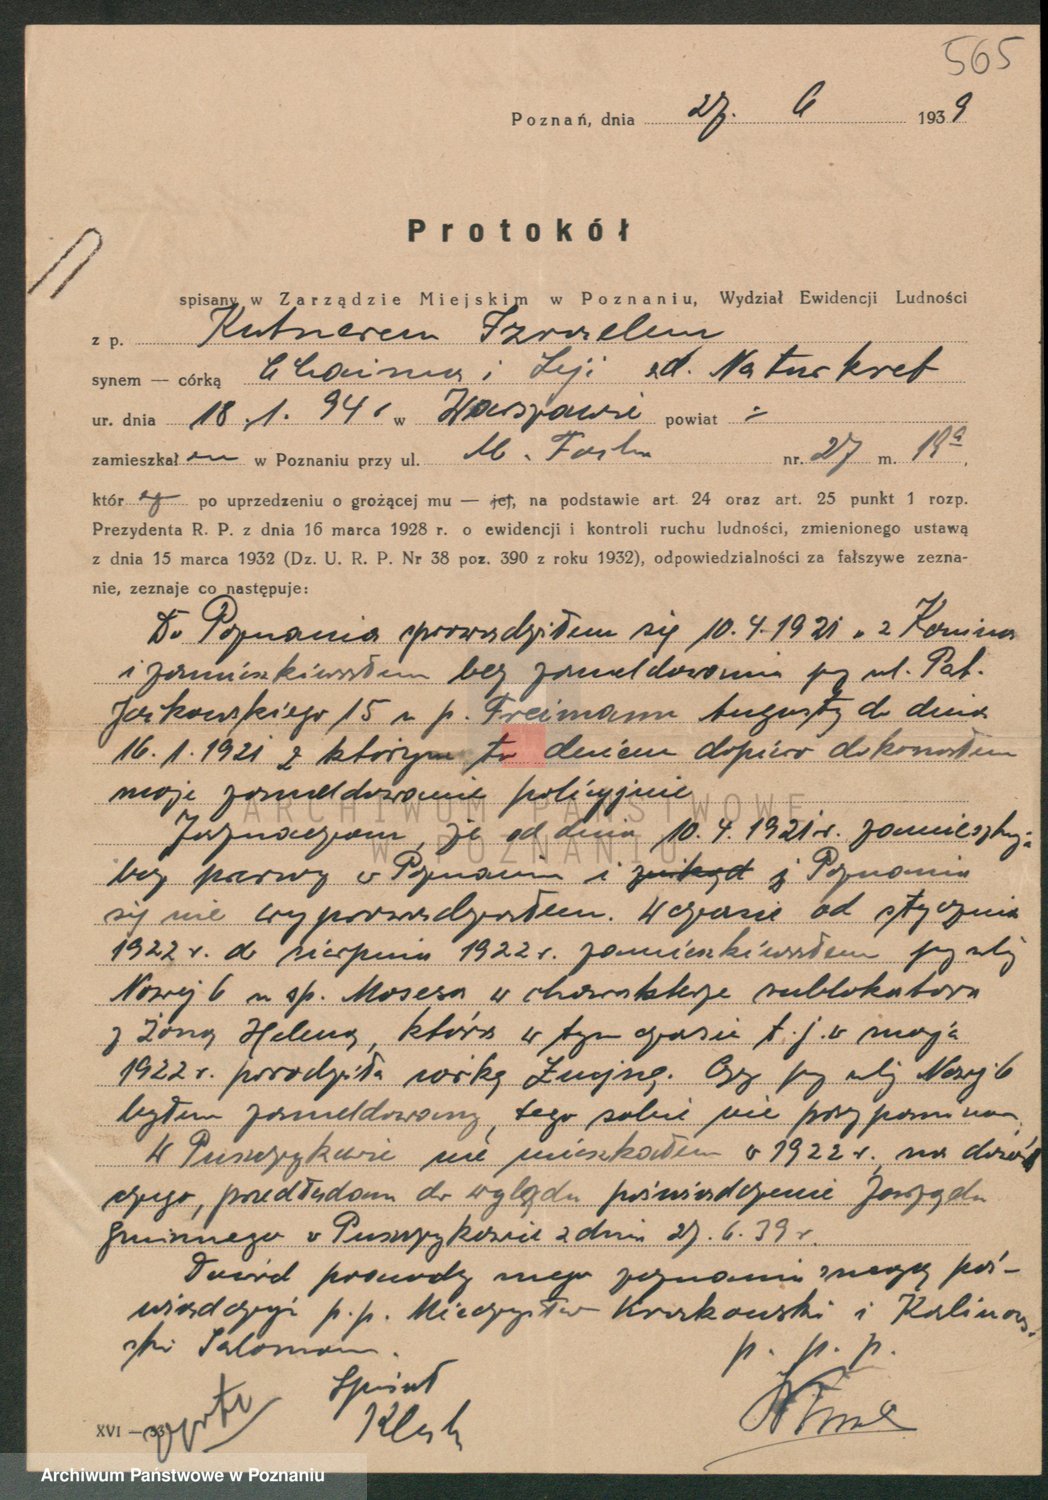 565
Poznań, dnia 27. 6 1939
Protokół
spisany w Zarządzie Miejskim w Poznaniu, Wydział Ewidencji Ludności
z p. Kutnerem Izraelem
synem — córką Chaima i Leji zd. Naturkret
ur. dnia 18.1.94 r w Warszawie powiat -"-
zamieszkał em w Poznaniu przy ul. M. Focha nr. 27 m. 19a.
któr y po uprzedzeniu o grożącej mu — jej, na podstawie art. 24 oraz art. 25 punkt 1 rozp.
Prezydenta R. P. z dnia 16 marca 1928 r. o ewidencji i kontroli ruchu ludności, zmienionego ustawą
z dnia 15 marca 1932 (Dz. U. R. P. Nr 38 poz. 390 z roku 1932), odpowiedzialności za fałszywe zezna-
nie, zeznaje co następuje:
Do Poznania sprowadziłem się 10.4.1921 z Konina
i zamieszkiwałem bez zameldowania przy ul. Pat.
Jackowskiego 15 u p. Freimann Augusty do dnia
16.1.1921 z którym to dniem dopiero dokonałem
moje zameldowanie policyjnie
Zaznaczam, że od dnia 10.4.1921 r. zamieszkuję
bez przerwy w Poznaniu i z Poznania
się nie wyprowadzałem. W czasie od stycznia
1922 r. do sierpnia 1922 r. zamieszkiwałem przy ulicy
Nowej 6 u śp. Mosesa w charakterze sublokatora
z żoną Heleną, która w tym czasie t.j. w maju
1922 r. porodziła córkę. Czy przy ulicy Nowej 6
byłem zameldowany, tego sobie nie przypominam
W Puszczykowie nie mieszkałem w 1922 r., na dowód
czego, przedkładam do wglądu poświadczenie Zarządu
Gminnego w Puszczykowie z dnia 27.6.39 r.
Dowód prawdy mego zeznania mogą poś-
wiadczyć p.p. Mieczysław Krakowski i Kalinow-
ski Salomon.
p. p. p.
Spisał
XVI — 33
ARCHIWUM PAŃSTWOWE
W POZNANIU
Archiwum Państwowe w Poznaniu